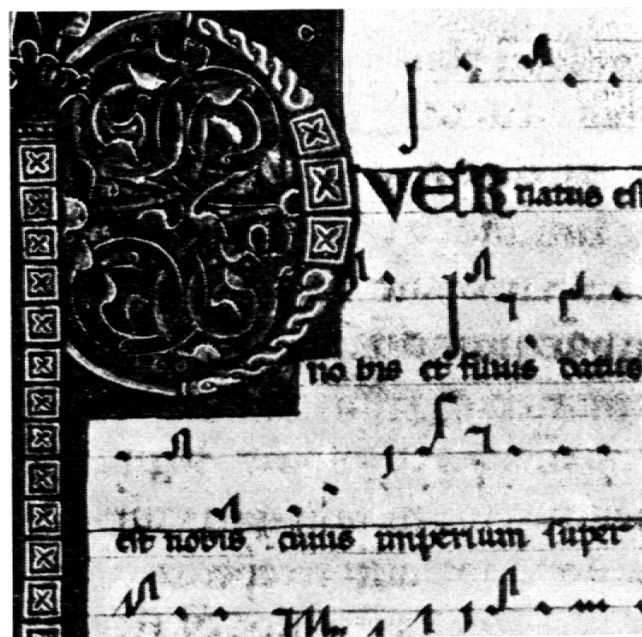 PVER natus est
no bis et filius datus
est nobis cuius imperium super